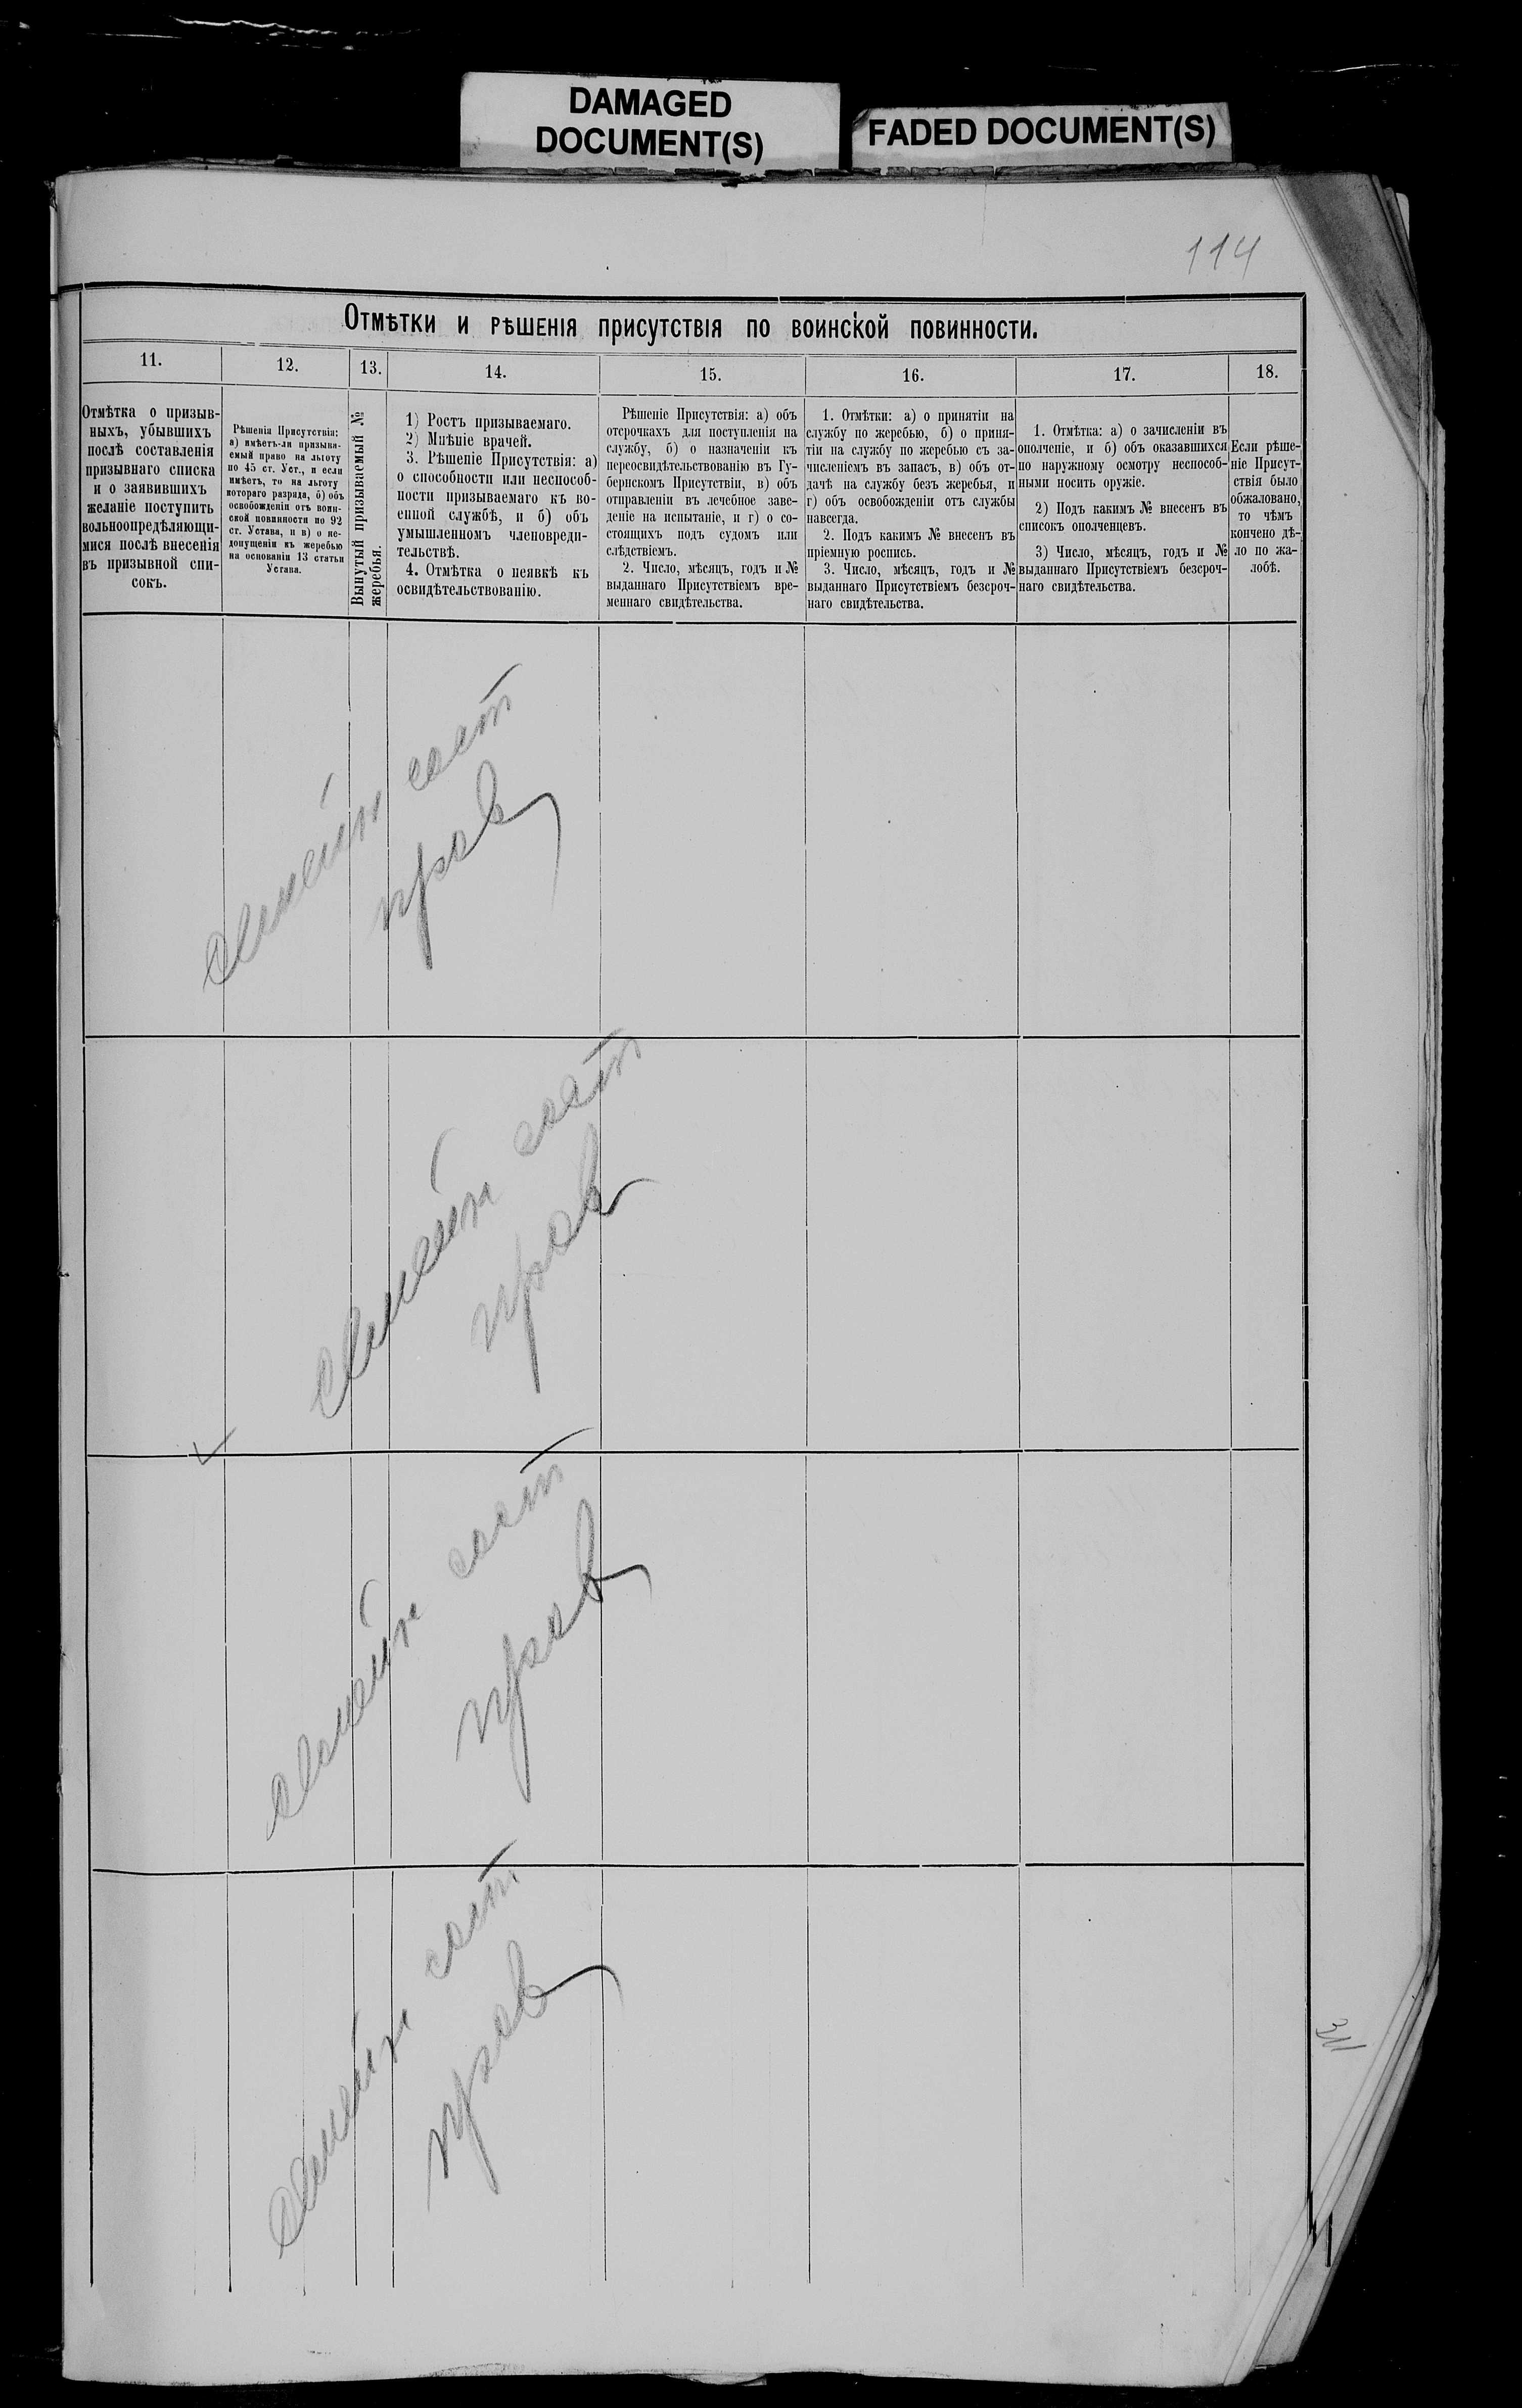 DAMAGED
DOCUMENT(S)
FADED DOCUMENT(S)
114
Отмѣтки и рѣшенія присутствія по воинской повинности.
11.
12.
13.
14.
15.
16.
17.
18.
Отмѣтка о призыв-
ныхъ, убывшихъ
послѣ составленія
призывнаго списка
и о заявившихъ
желаніе поступить
вольноопредѣляющи-
мися послѣ внесенія
въ призывной спи-
сокъ.
Рѣшенія Присутствія:
а) имѣетъ-ли призыва-
емый право на льготу
по 45 ст. Уст., и если
имѣетъ, то на льготу
котораго разряда, б) объ
освобожденіи отъ воин-
ской повинности по 92
ст. Устава, и в) о не-
допущеніи къ жеребью
на основаніи 13 статьи
Устава.
Вынутый призываемый №
жеребья.
1) Ростъ призываемаго.
2) Мнѣніе врачей.
3. Рѣшеніе Присутствія: а)
о способности или неспособ-
ности призываемаго къ во-
енной службѣ, и б) объ
умышленномъ членовреди-
тельствѣ.
4. Отмѣтка о неявкѣ къ
освидѣтельствованію.
Рѣшеніе Присутствія: а) объ
отсрочкахъ для поступленія на
службу, б) о назначеніи къ
переосвидѣтельствованію въ Гу-
бернскомъ Присутствіи, в) объ
отправленіи въ лечебное заве-
деніе на испытаніе, и г) о со-
стоящихъ подъ судомъ или
слѣдствіемъ.
2. Число, мѣсяцъ, годъ и №
выданнаго Присутствіемъ вре-
меннаго свидѣтельства.
1. Отмѣтки: а) о принятіи на
службу по жеребью, б) о приня-
тіи на службу по жеребью съ за-
численіемъ въ запасъ, в) объ от-
дачѣ на службу безъ жеребья, и
г) объ освобожденіи отъ службы
навсегда.
2. Подъ какимъ № внесенъ въ
пріемную роспись.
3. Число, мѣсяцъ, годъ и №
выданнаго Присутствіемъ безсроч-
наго свидѣтельства.
1. Отмѣтка: а) о зачисленіи въ
ополченіе, и б) объ оказавшихся
по наружному осмотру неспособ-
ными носить оружіе.
2) Подъ какимъ № внесенъ въ
списокъ ополченцевъ.
3) Число, мѣсяцъ, годъ и №
выданнаго Присутствіемъ безсроч-
наго свидѣтельства.
Если рѣше-
ніе Присут-
ствія было
обжаловано,
то чѣмъ
кончено дѣ-
ло по жа-
лобѣ.
семейн сост
пров
семейн сост
пров
семейн сост
пров
семейн сост
пров